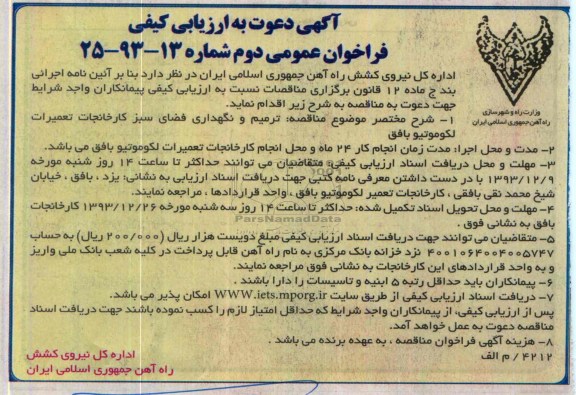 آگهی دعوت به ارزیابی کیفی
فراخوان عمومی دوم شماره ۱۳-۹۳-۲۵
وزارت راه و شهرسازی
راه آهن جمهوری اسلامی ایران
اداره کل نیروی کشش راه آهن جمهوری اسلامی ایران در نظر دارد بنا بر آئین نامه اجرائی
بند ج ماده ۱۲ قانون برگزاری مناقصات نسبت به ارزیابی کیفی پیمانکاران واجد شرایط
جهت دعوت به مناقصه به شرح زیر اقدام نماید.
۱- شرح مختصر موضوع مناقصه: ترمیم و نگهداری فضای سبز کارخانجات تعمیرات
لکوموتیو بافق
۲- مدت و محل اجرا: مدت زمان انجام کار ۲۴ ماه و محل انجام کارخانجات تعمیرات لکوموتیو بافق می باشد.
۳- مهلت و محل دریافت اسناد ارزیابی کیفی: متقاضیان می توانند حداکثر تا ساعت ۱۴ روز شنبه مورخه
۱۳۹۳/۱۲/۹ با در دست داشتن معرفی نامه کتبی جهت دریافت اسناد ارزیابی به نشانی: یزد ، بافق ، خیابان
شیخ محمد تقی بافقی ، کارخانجات تعمیر لکوموتیو بافق ، واحد قراردادها ، مراجعه نمایند.
ParsNamadData
۴- مهلت و محل تحویل اسناد تکمیل شده: حداکثر تا ساعت ۱۴ روز سه شنبه مورخه ۱۳۹۳/۱۲/۲۶ کارخانجات
بافق به نشانی فوق .
۵- متقاضیان می توانند جهت دریافت اسناد ارزیابی کیفی مبلغ دویست هزار ریال (۲۰۰/۰۰۰ ریال) به حساب
۴۰۰۱۰۶۴۰۰۴۰۰۵۷۴۷ نزد خزانه بانک مرکزی به نام راه آهن قابل پرداخت در کلیه شعب بانک ملی واریز
و به واحد قراردادهای این کارخانجات به نشانی فوق مراجعه نمایند.
۶- پیمانکاران باید حداقل رتبه ۵ ابنیه و تاسیسات را دارا باشند .
۷- دریافت اسناد ارزیابی کیفی از طریق سایت WWW.iets.mporg.ir امکان پذیر می باشد.
پس از ارزیابی کیفی، از پیمانکاران واجد شرایط که حداقل امتیاز لازم را کسب نموده باشند جهت دریافت اسناد
مناقصه دعوت به عمل خواهد آمد.
۸- هزینه آگهی فراخوان مناقصه ، به عهده برنده می باشد .
۴۲۱۲ / م الف
اداره کل نیروی کشش
راه آهن جمهوری اسلامی ایران